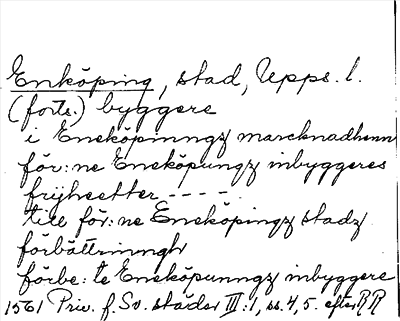 Enköping, stad, Upps. l.
(forts.) byggere
i Eneköpinngz marcknadhenn
för:ne Eneköpungz inbyggeres
frijheetter - - - -
till för:ne Eneköpingz stadz
förbättrinngh
förbe:te Eneköpunngz inbyggere
1561 Priv. f. Sv. städer III:1, ss. 4, 5. efter RR